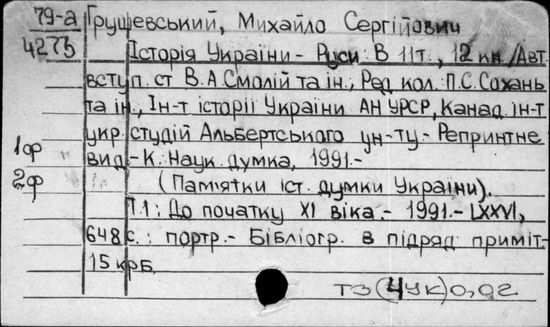 79-а Грушевський, Михайло Сергійович
4275
Історія України - Руси В 11 т., 12 кн./Авт.
вступ. ст В.А Смолій та ін., Ред. кол. П.С. Сохань
та ін., Ін-т історії України АН УРСР, Канад. ін-т
укр. студій Альбертського ун-ту.- Репринтне
1ф вид.- К. Наук. думка, 1991.-
2ф (Пам'ятки іст. думки України).
Т.1: До початку XI віка.- 1991.- LXXVI,
648 с.: портр.- Бібліогр. в підряд. приміт.-
15 крб.
ТЗ(4УК)0,02